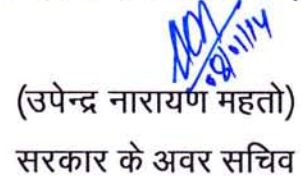 08/01/14
(उपेन्द्र नारायण महतो)
सरकार के अवर सचिव